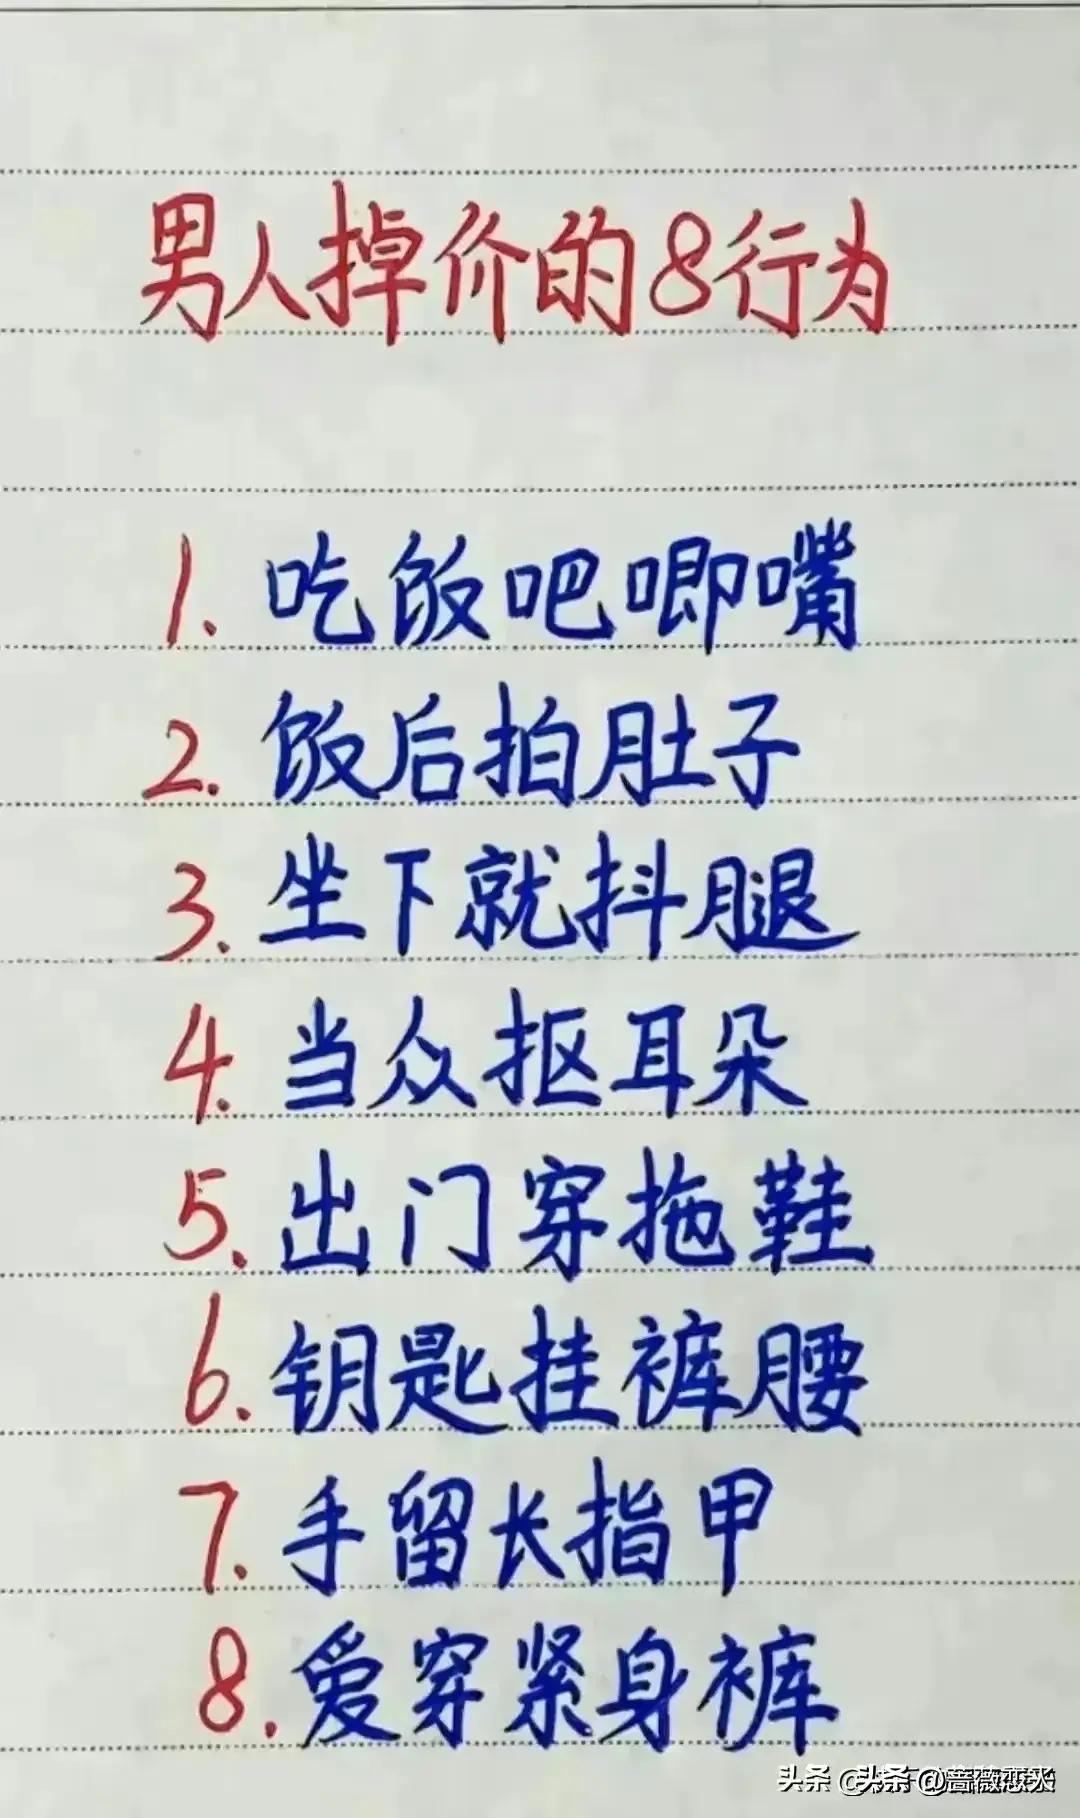 男人掉价的8行为
1. 吃饭吧唧嘴
2. 饭后拍肚子
3. 坐下就抖腿
4. 当众抠耳朵
5. 出门穿拖鞋
6. 钥匙挂裤腰
7. 手留长指甲
8. 爱穿紧身裤
头条 @头条 @蔷薇恋火